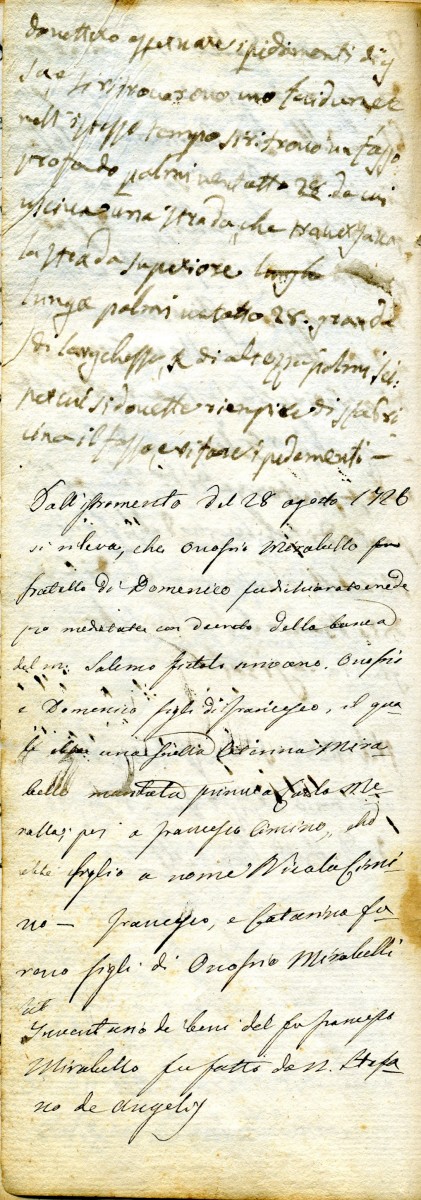 dovettero osservare i pedamenti di q
sa, e si ritrovarono uno
nell'istesso tempo si ritrovò un fosso
profondo palmi ventotto 28 da cui
usciva una strada, che traversava
la strada superiore
lunga palmi ventotto 28. grande
di larghezza, e di altezza palmi sei:
per cui si dovette riempire di fabri
cina il fosso, e rifare i pedamenti —
Dall'istromento del 28 agosto 1726
si rileva, che Onofrio Mirabello fu
fratello di Domenico fu dichiarato erede
pro meditate con decreto della banca
del m. Salerno Onofrio
e Domenico figli di Francesco, il qua
le una figlia Caterina Mira
bello maritata prima a Carlo Me-
rolla, poi a Francesco Cimino, che
ebbe figlio a nome Nicola Cimi
no — Francesco, e Catarina fu-
rono figli di Onofrio Mirabelli
Inventario de beni del fu Francesco
Mirabello fu fatto da N. Stefa
no de Angelis